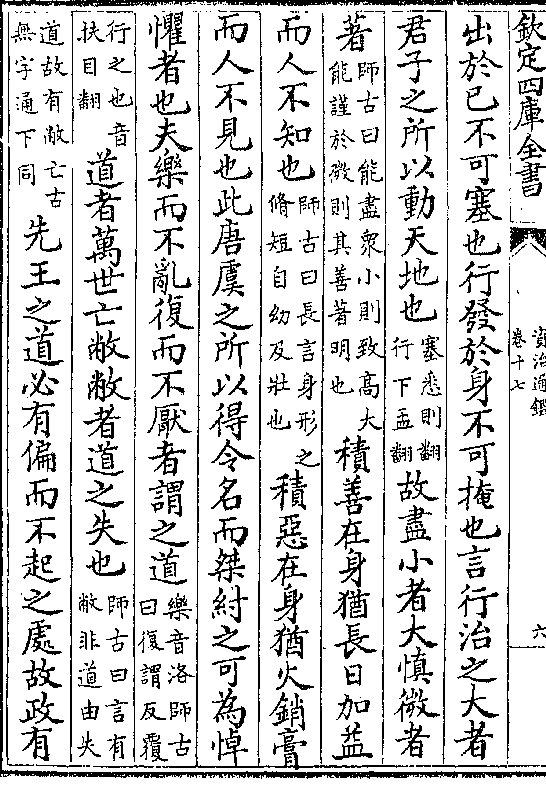 欽定四庫全書
資治通鑑
卷十七
六
出於已不可塞也行發於身不可掩也言行治之大者
君子之所以動天地也塞悉則翻行下孟翻故盡小者大慎微者
著師古曰能盡衆小則致髙大能謹於微則其善著明也積善在身猶長日加益
而人不知也師古曰長言身形之脩短自幼及壯也積惡在身猶火銷膏
而人不見也此唐虞之所以得令名而桀紂之可為悼
懼者也夫樂而不亂復而不厭者謂之道樂音洛師古曰復謂反覆
行之也音扶目翻道者萬世亡敝敝者道之失也師古曰言有敝非道由失
道故有敝亡古無字通下同先王之道必有偏而不起之處故政有